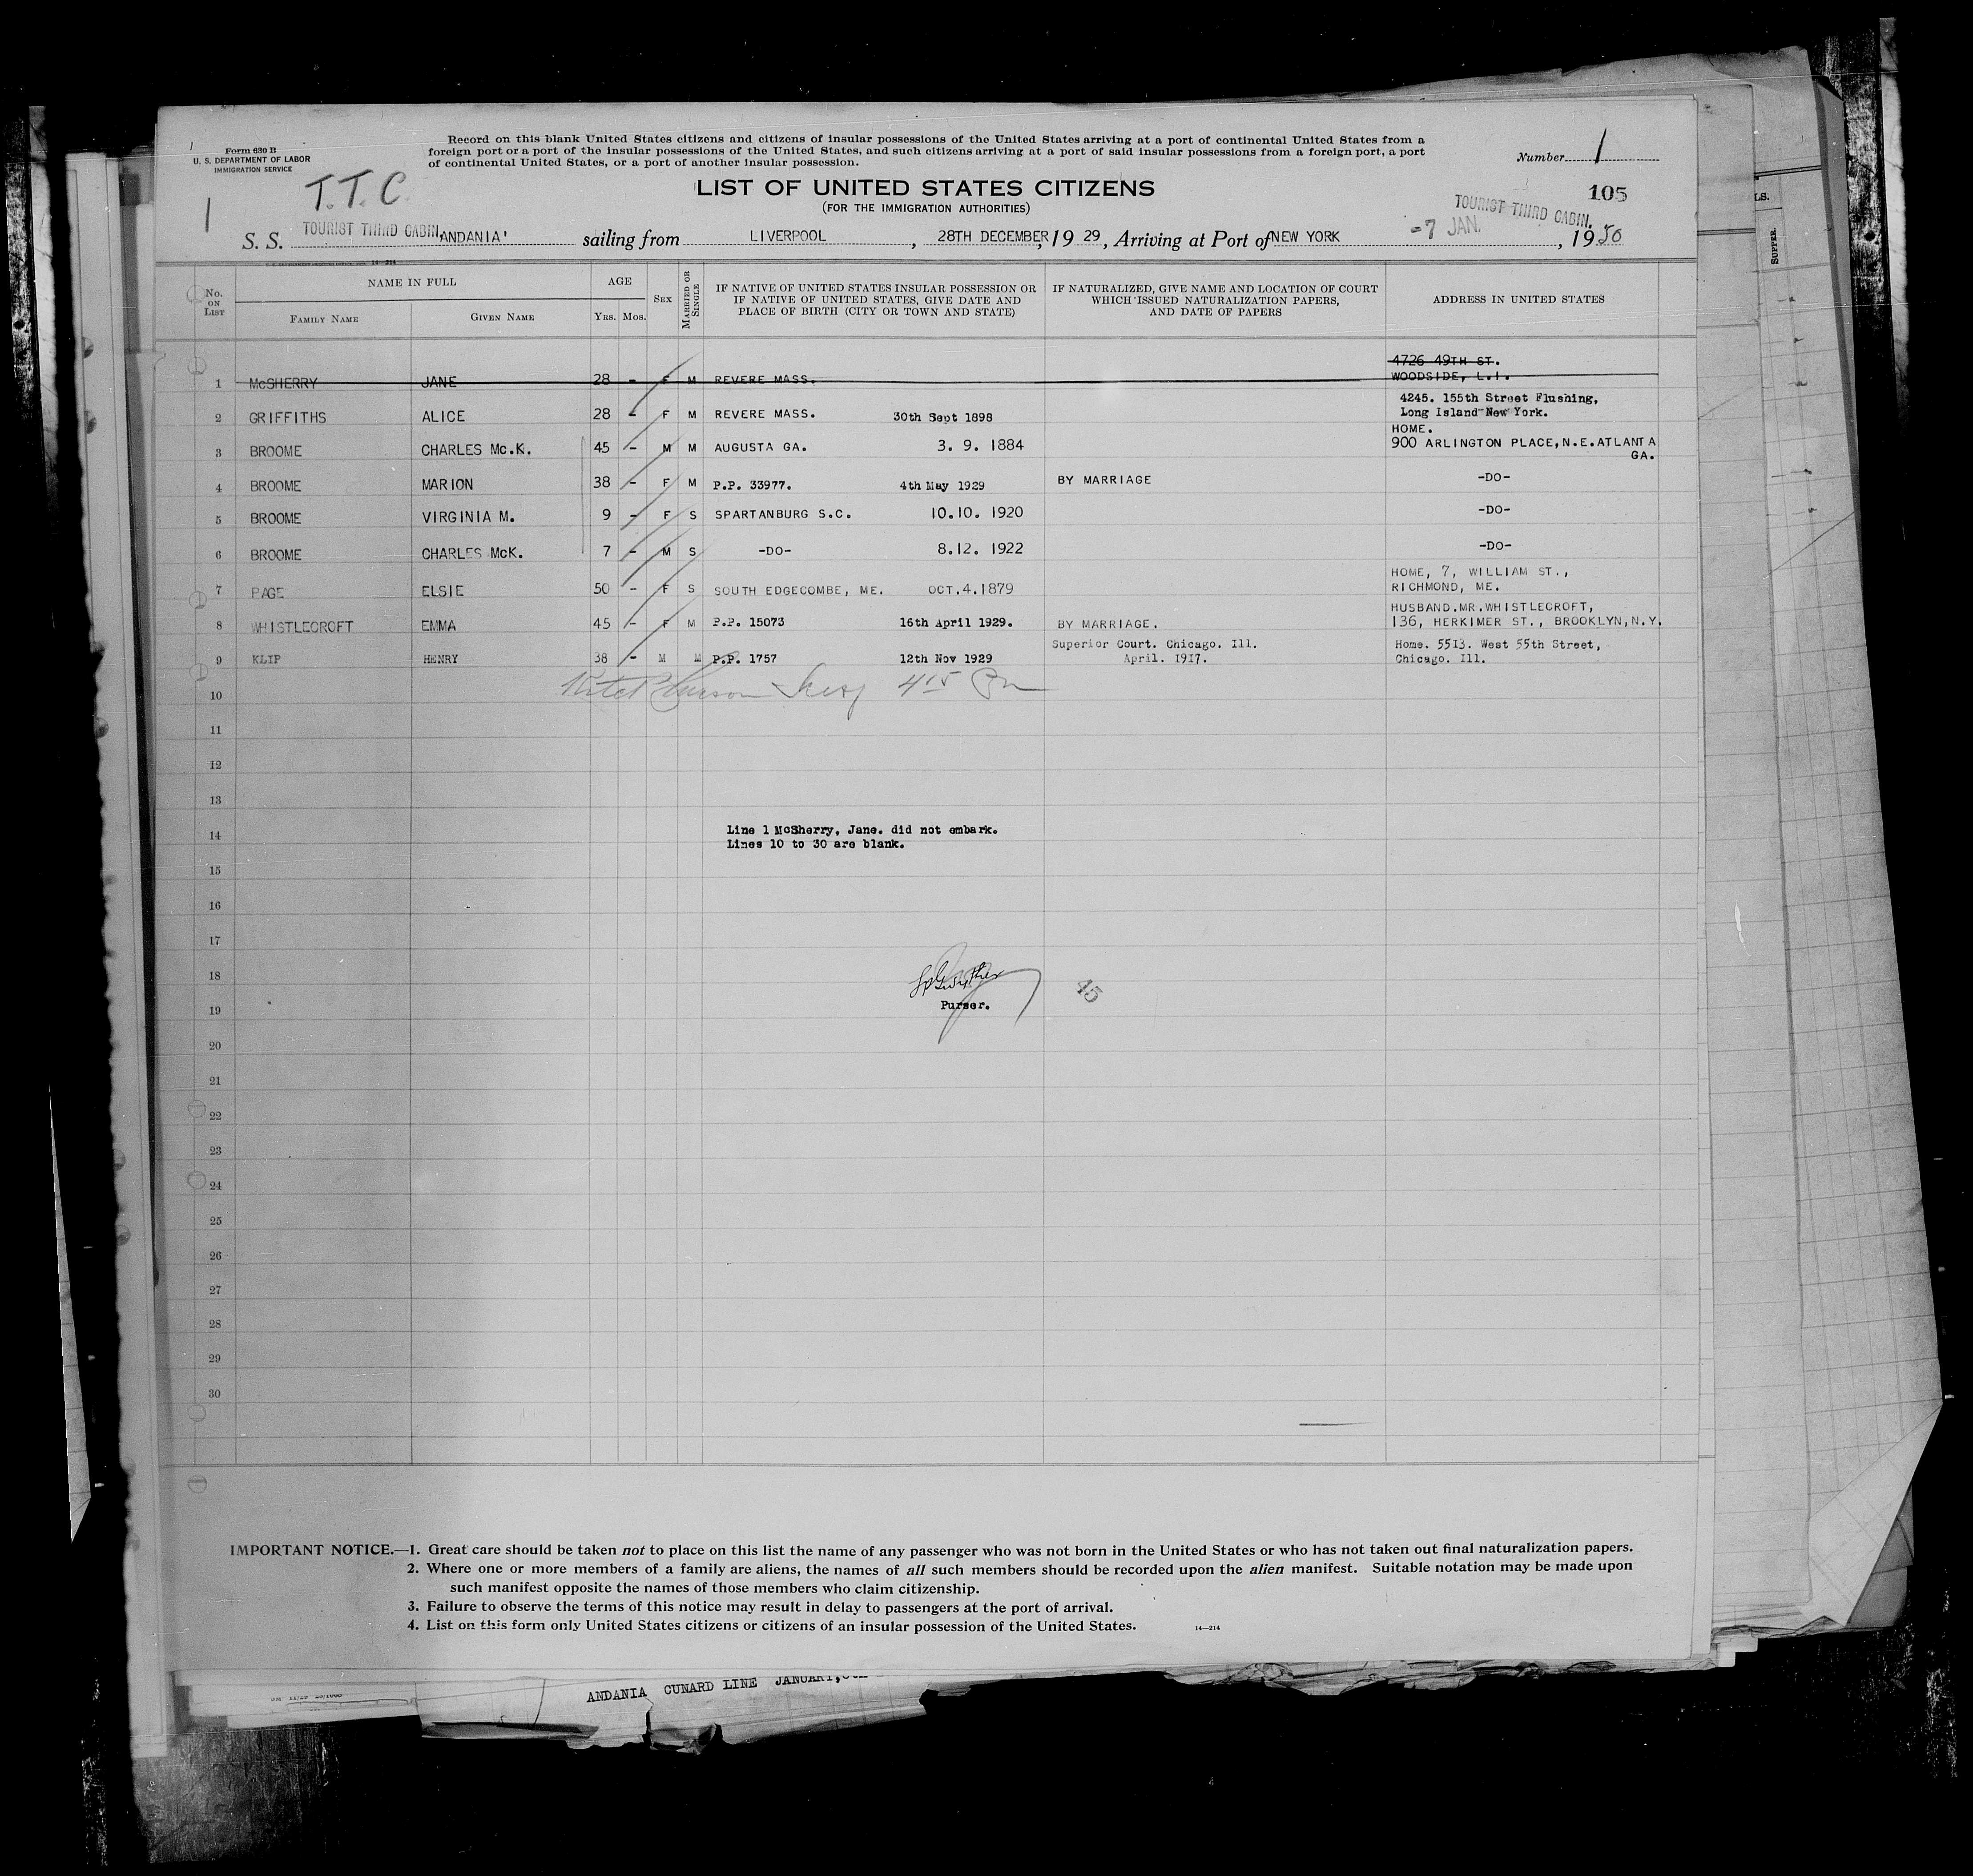 Form 630 B
U. S. DEPARTMENT OF LABOR
IMMIGRATION SERVICE
Record on this blank United States citizens and citizens of insular possessions of the United States arriving at a port of continental United States from a
foreign port or a port of the insular possessions of the United States, and such citizens arriving at a port of said insular possessions from a foreign port, a port
of continental United States, or a port of another insular possession.
Number 1
T.T.C.
LIST OF UNITED STATES CITIZENS
(FOR THE IMMIGRATION AUTHORITIES)
105
1
TOURIST THIRD CABIN.
S. S. TOURIST THIRD CABIN. ANDANIA' sailing from LIVERPOOL, 28TH DECEMBER, 19 29, Arriving at Port of NEW YORK -7 JAN., 1930
No. ON LIST
NAME IN FULL
FAMILY NAME GIVEN NAME
AGE
YRS. MOS.
SEX
MARRIED OR SINGLE
IF NATIVE OF UNITED STATES INSULAR POSSESSION OR
IF NATIVE OF UNITED STATES, GIVE DATE AND
PLACE OF BIRTH (CITY OR TOWN AND STATE)
IF NATURALIZED, GIVE NAME AND LOCATION OF COURT
WHICH ISSUED NATURALIZATION PAPERS,
AND DATE OF PAPERS
ADDRESS IN UNITED STATES
4726 49TH ST.
1 McSHERRY JANE 28 - F M REVERE MASS. WOODSIDE, L.I.
4245. 155th Street Flushing,
2 GRIFFITHS ALICE 28 - F M REVERE MASS. 30th Sept 1898 Long Island New York.
HOME.
3 BROOME CHARLES Mc.K. 45 - M M AUGUSTA GA. 3. 9. 1884 900 ARLINGTON PLACE, N.E. ATLANTA
GA.
4 BROOME MARION 38 - F M P.P. 33977. 4th May 1929 BY MARRIAGE -DO-
5 BROOME VIRGINIA M. 9 - F S SPARTANBURG S.C. 10.10. 1920 -DO-
6 BROOME CHARLES McK. 7 - M S -DO- 8.12. 1922 -DO-
HOME, 7, WILLIAM ST.,
7 PAGE ELSIE 50 - F S SOUTH EDGECOMBE, ME. OCT.4.1879 RICHMOND, ME.
HUSBAND.MR.WHISTLECROFT,
8 WHISTLECROFT EMMA 45 - F M P.P. 15073 16th April 1929. BY MARRIAGE. 136, HERKIMER ST., BROOKLYN,N.Y.
Superior Court. Chicago. Ill. Home. 5513. West 55th Street,
9 KLIP HENRY 38 - M M P.P. 1757 12th Nov 1929 April. 1917. Chicago. Ill.
10
11
12
13
14
Line 1 McSherry, Jane. did not embark.
Lines 10 to 30 are blank.
15
16
17
18
19
Purser.
45
20
21
22
23
24
25
26
27
28
29
30
IMPORTANT NOTICE.—1. Great care should be taken not to place on this list the name of any passenger who was not born in the United States or who has not taken out final naturalization papers.
2. Where one or more members of a family are aliens, the names of all such members should be recorded upon the alien manifest. Suitable notation may be made upon
such manifest opposite the names of those members who claim citizenship.
3. Failure to observe the terms of this notice may result in delay to passengers at the port of arrival.
4. List on this form only United States citizens or citizens of an insular possession of the United States. 14—214
ANDANIA CUNARD LINE JANUARY,
SUPPER.